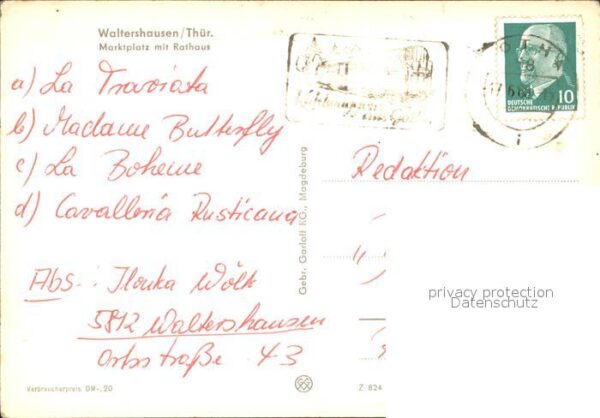 Waltershausen/Thür.
Marktplatz mit Rathaus
a) La Traviata
b) Madame Butterfly
c) La Boheme
d) Cavalleria Rusticana
Abs.: Ilonka Wölk
5812 Waltershausen
Ortsstraße 43
Verbraucherpreis DM -,20
Gebr. Garloff KG., Magdeburg
Z 824
10
DEUTSCHE
DEMOKRATISCHE REPUBLIK
Redaktion
privacy protection
Datenschutz